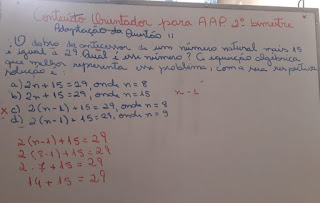 Conteúdo Orientador para AAP 2º bimestre
Adaptação da Questão 11
O dobro do antecessor de um número natural mais 15
é igual a 29. Qual é esse número? A equação algébrica
que melhor representa esse problema, com a sua respectiva
solução é:
a) 2n + 15 = 29, onde n = 8
b) 2n + 15 = 29, onde n = 15
n - 1
x c) 2(n-1) + 15 = 29, onde n = 8
d) 2(n-1) + 15 = 29, onde n = 9
2(n-1)+15=29
2(8-1)+15=29
2·7+15=29
14+15=29